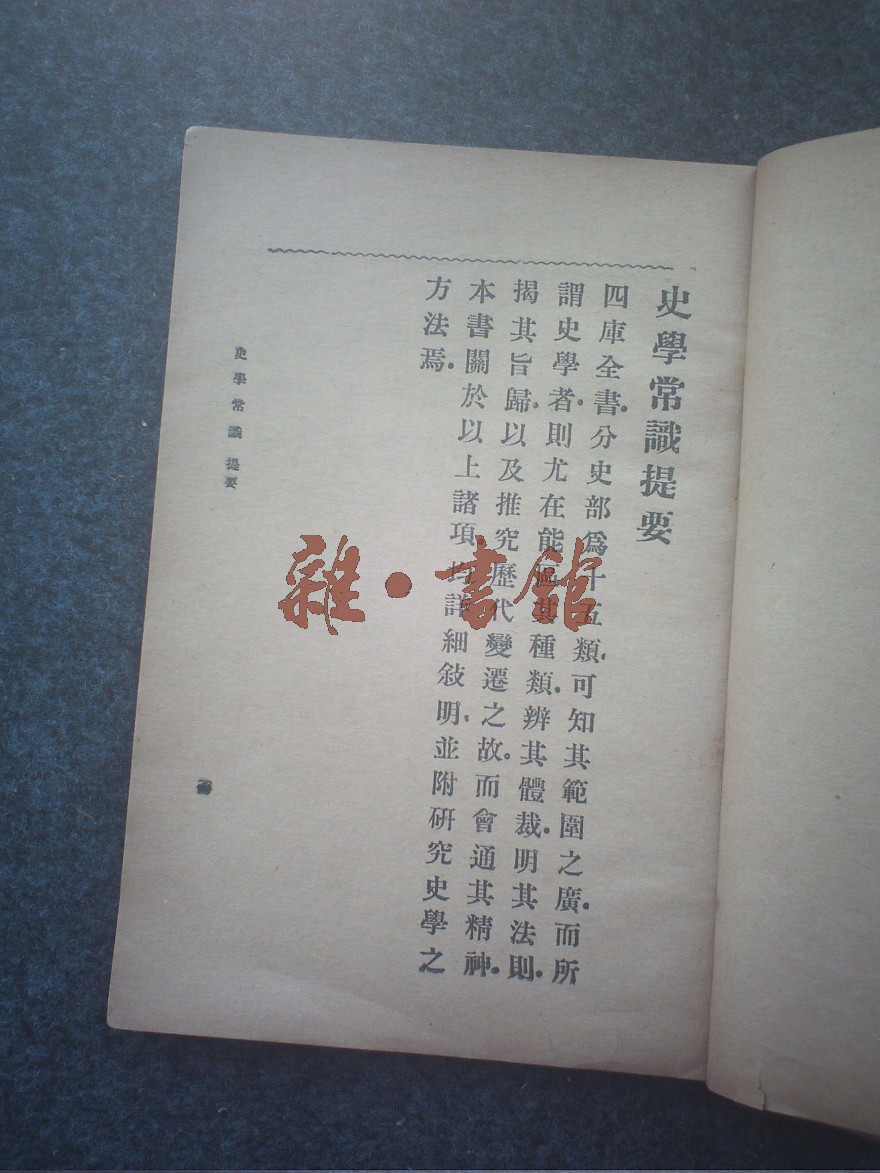 史學常識提要
四庫全書．分史部爲十五類．可知其範圍之廣．而所
謂史學者．則尤在能區其種類．辨其體裁．明其法則．
揭其旨歸．以及推究歷代變遷之故．而會通其精神．
本書關於以上諸項．均詳細敍明．並附研究史學之
方法焉．
史學常識 提要
雜·書館